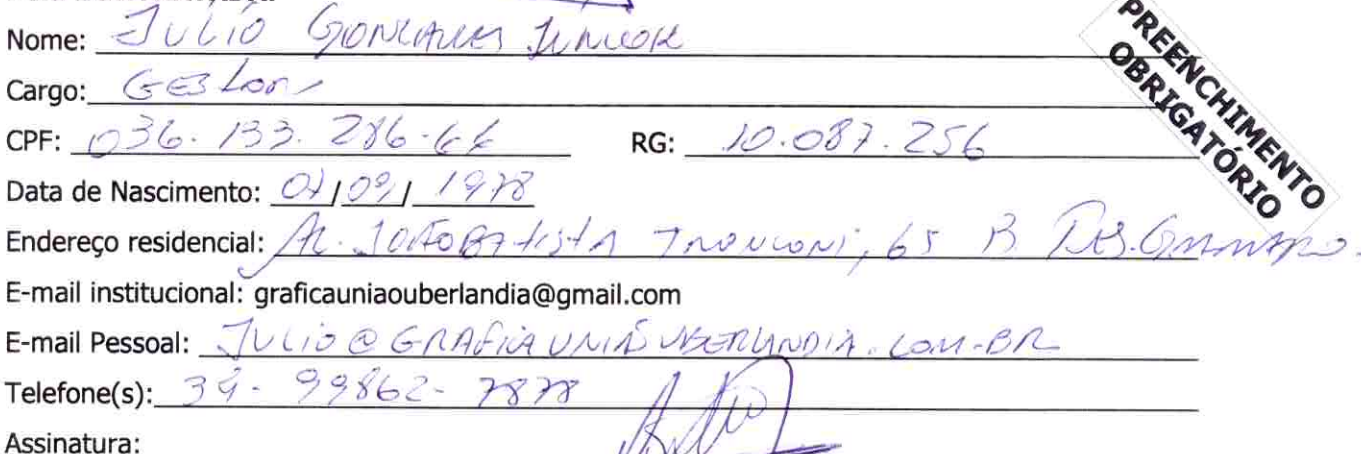 Nome: JULIO GONÇALVES JUNIOR
Cargo: GESTOR
CPF: 036.133.286-66 RG: 10.087.256
Data de Nascimento: 07/09/1978
Endereço residencial: AL. JOÃO BATISTA, 65 B.
E-mail institucional: graficauniaouberlandia@gmail.com
E-mail Pessoal: JULIO@GRAFICAUNIÃOUBERLANDIA.COM.BR
Telefone(s): 34-99862-7878
Assinatura:
PREENCHIMENTO
OBRIGATÓRIO